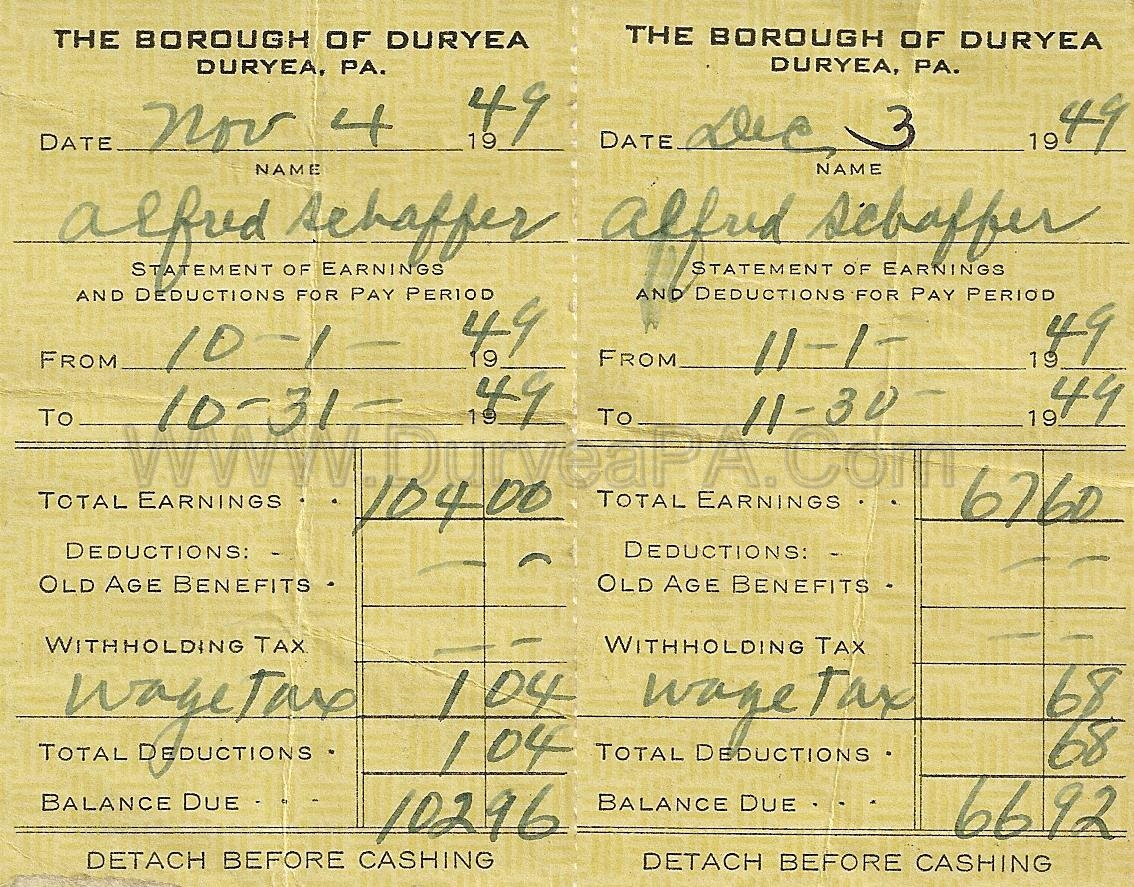 THE BOROUGH OF DURYEA
DURYEA, PA.
DATE Nov 4 1949
NAME
Alfred Schaffer
STATEMENT OF EARNINGS
AND DEDUCTIONS FOR PAY PERIOD
FROM 10-1- 1949
TO 10-31- 1949
TOTAL EARNINGS · · 104 00
DEDUCTIONS: - — -
OLD AGE BENEFITS ·
WITHHOLDING TAX — -
Wage Tax 1 04
TOTAL DEDUCTIONS · 1 04
BALANCE DUE · · · 102 96
DETACH BEFORE CASHING
THE BOROUGH OF DURYEA
DURYEA, PA.
DATE Dec, 3 1949
NAME
Alfred Schaffer
STATEMENT OF EARNINGS
AND DEDUCTIONS FOR PAY PERIOD
FROM 11-1- 1949
TO 11-30- 1949
TOTAL EARNINGS · · 67 60
DEDUCTIONS: - — -
OLD AGE BENEFITS ·
WITHHOLDING TAX — -
Wage Tax 68
TOTAL DEDUCTIONS · 68
BALANCE DUE · · · 66 92
DETACH BEFORE CASHING
WWW.DuryeaPA.Com